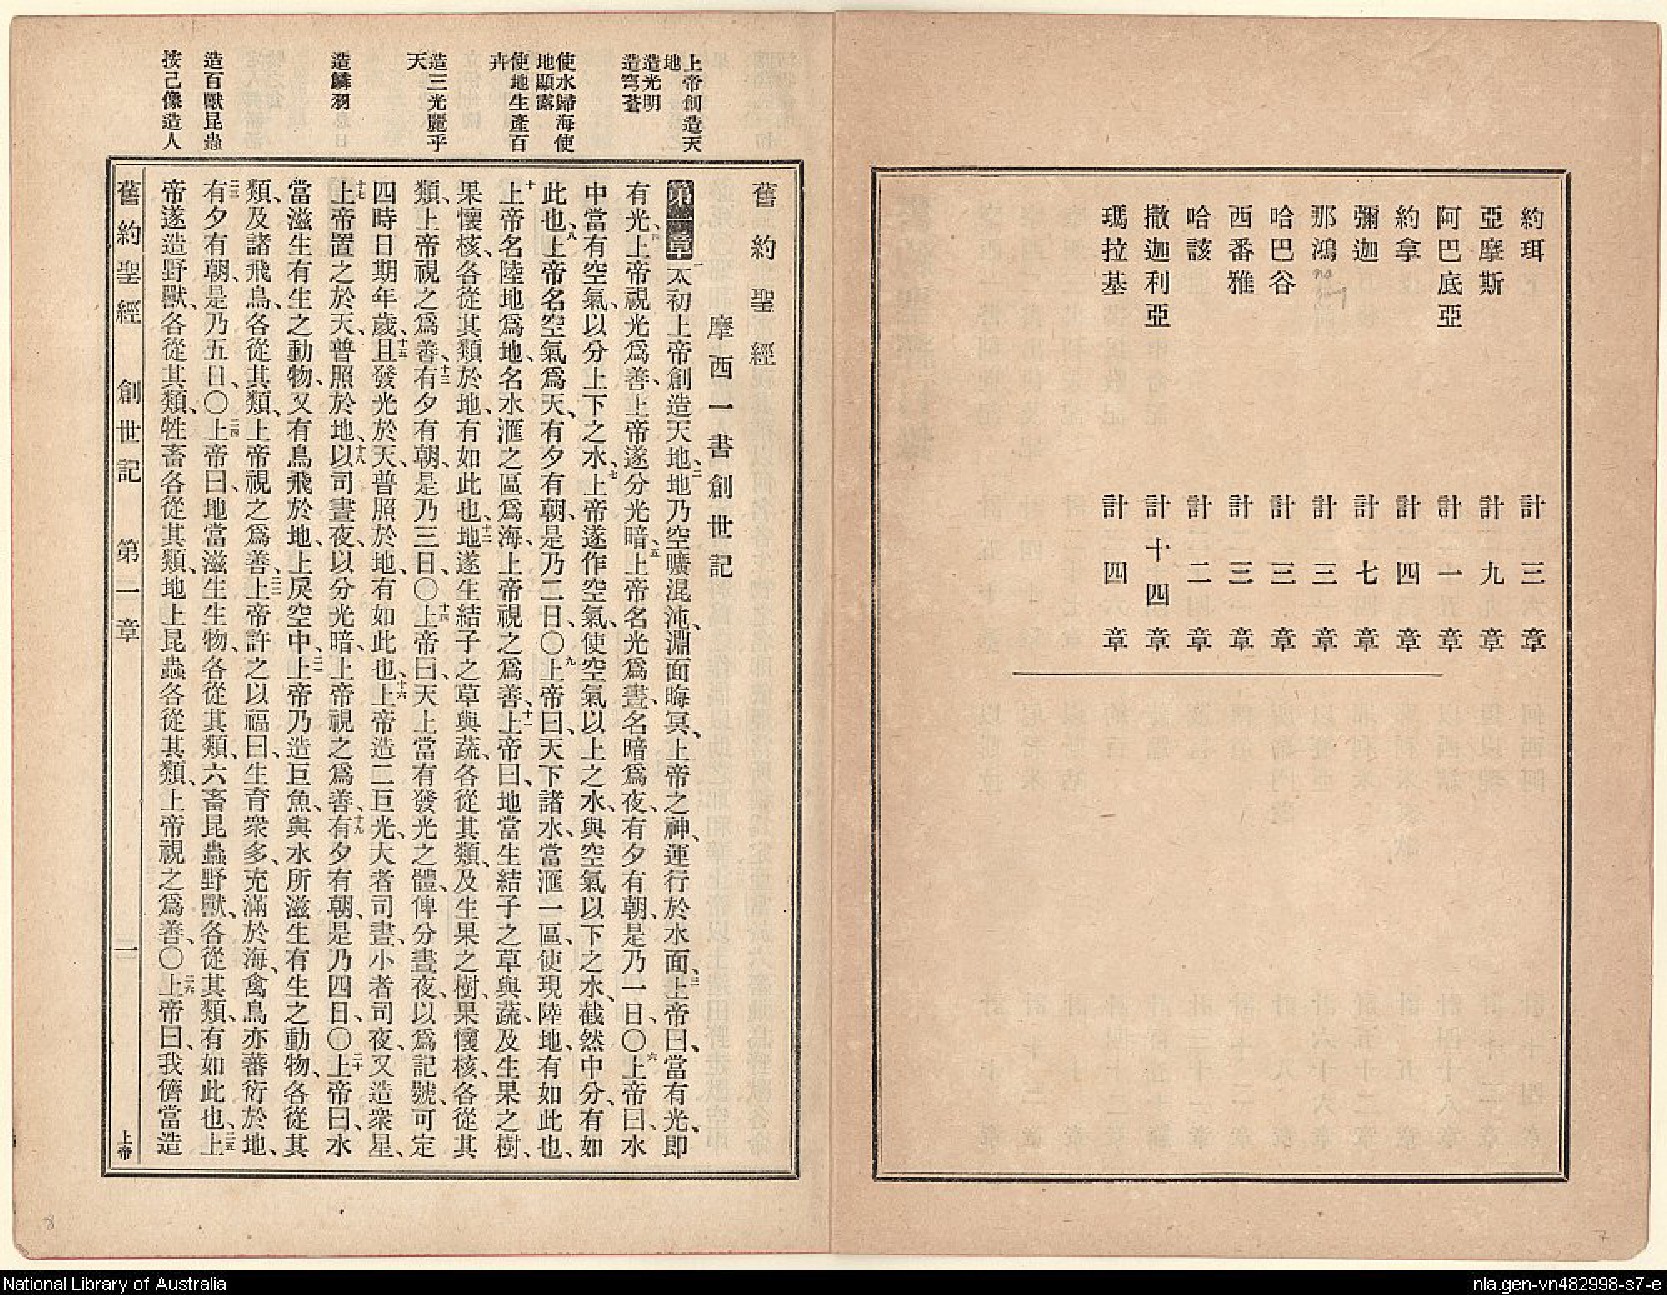 約珥 計三章
亞摩斯 計九章
阿巴底亞 計一章
約拿 計四章
彌迦 計七章
那鴻 計三章
哈巴谷 計三章
西番雅 計三章
哈該 計二章
撒迦利亞 計十四章
瑪拉基 計四章
7
上帝創造天
地
造光明
造穹蒼
使水歸海使
地顯露
使地生產百
卉
造三光麗乎
天
造鱗羽
造百獸昆蟲
按己像造人
舊約聖經
摩西一書創世記
第一章 一太初上帝創造天地、二地乃空曠混沌、淵面晦冥、上帝之神、運行於水面、三上帝曰、當有光、即
有光、四上帝視光爲善、上帝遂分光暗、五上帝名光爲晝、名暗爲夜、有夕有朝、是乃一日、〇六上帝曰、水
中當有空氣、以分上下之水、七上帝遂作空氣、使空氣以上之水、與空氣以下之水、截然中分、有如
此也、八上帝名空氣爲天、有夕有朝、是乃二日、〇九上帝曰、天下諸水、當滙一區、使現陸地、有如此也、
十上帝名陸地爲地、名水滙之區爲海、上帝視之爲善、十一上帝曰、地當生結子之草與蔬、及生果之樹、
果懷核、各從其類於地、有如此也、十二地遂生結子之草與蔬、各從其類、及生果之樹、果懷核、各從其
類、上帝視之爲善、十三有夕有朝、是乃三日、〇十四上帝曰、天上當有發光之體、俾分晝夜、以爲記號、可定
四時日期年歲、十五且發光於天、普照於地、有如此也、十六上帝造二巨光、大者司晝、小者司夜、又造衆星、
十七上帝置之於天、普照於地、十八以司晝夜、以分光暗、上帝視之爲善、十九有夕有朝、是乃四日、〇二十上帝曰、水
當滋生有生之動物、又有鳥飛於地上戾空中、二一上帝乃造巨魚、與水所滋生有生之動物、各從其
類、及諸飛鳥、各從其類、上帝視之爲善、二二上帝許之以福曰、生育衆多、充滿於海、禽鳥亦蕃衍於地、
二三有夕有朝、是乃五日、〇二四上帝曰、地當滋生生物、各從其類、六畜昆蟲野獸、各從其類、有如此也、二五上
帝遂造野獸、各從其類、牲畜各從其類、地上昆蟲各從其類、上帝視之爲善、〇二六上帝曰、我儕當造
舊約聖經 創世記 第一章 一 上帝
8
National Library of Australia
nla.gen-vn482998-s7-e